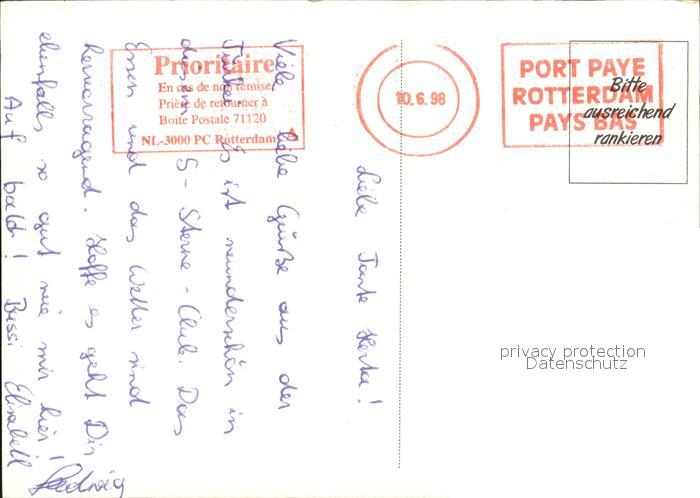 Liebe Tante Herta!
Viele liebe Grüße aus der
Türkei. Es ist wunderschön in
diesem 5-Sterne-Club. Das
Essen und das Wetter sind
hervorragend. Hoffe es geht Dir
ebenfalls so gut wie mir hier!
Auf bald! Bussi Elisabeth
Hedwig
Prioritaire
En cas de non remise,
Prière de retourner à
Boite Postale 71120
NL-3000 PC Rotterdam
10.6.98
PORT PAYE
ROTTERDAM
PAYS BAS
Bitte
ausreichend
rankieren
privacy protection
Datenschutz